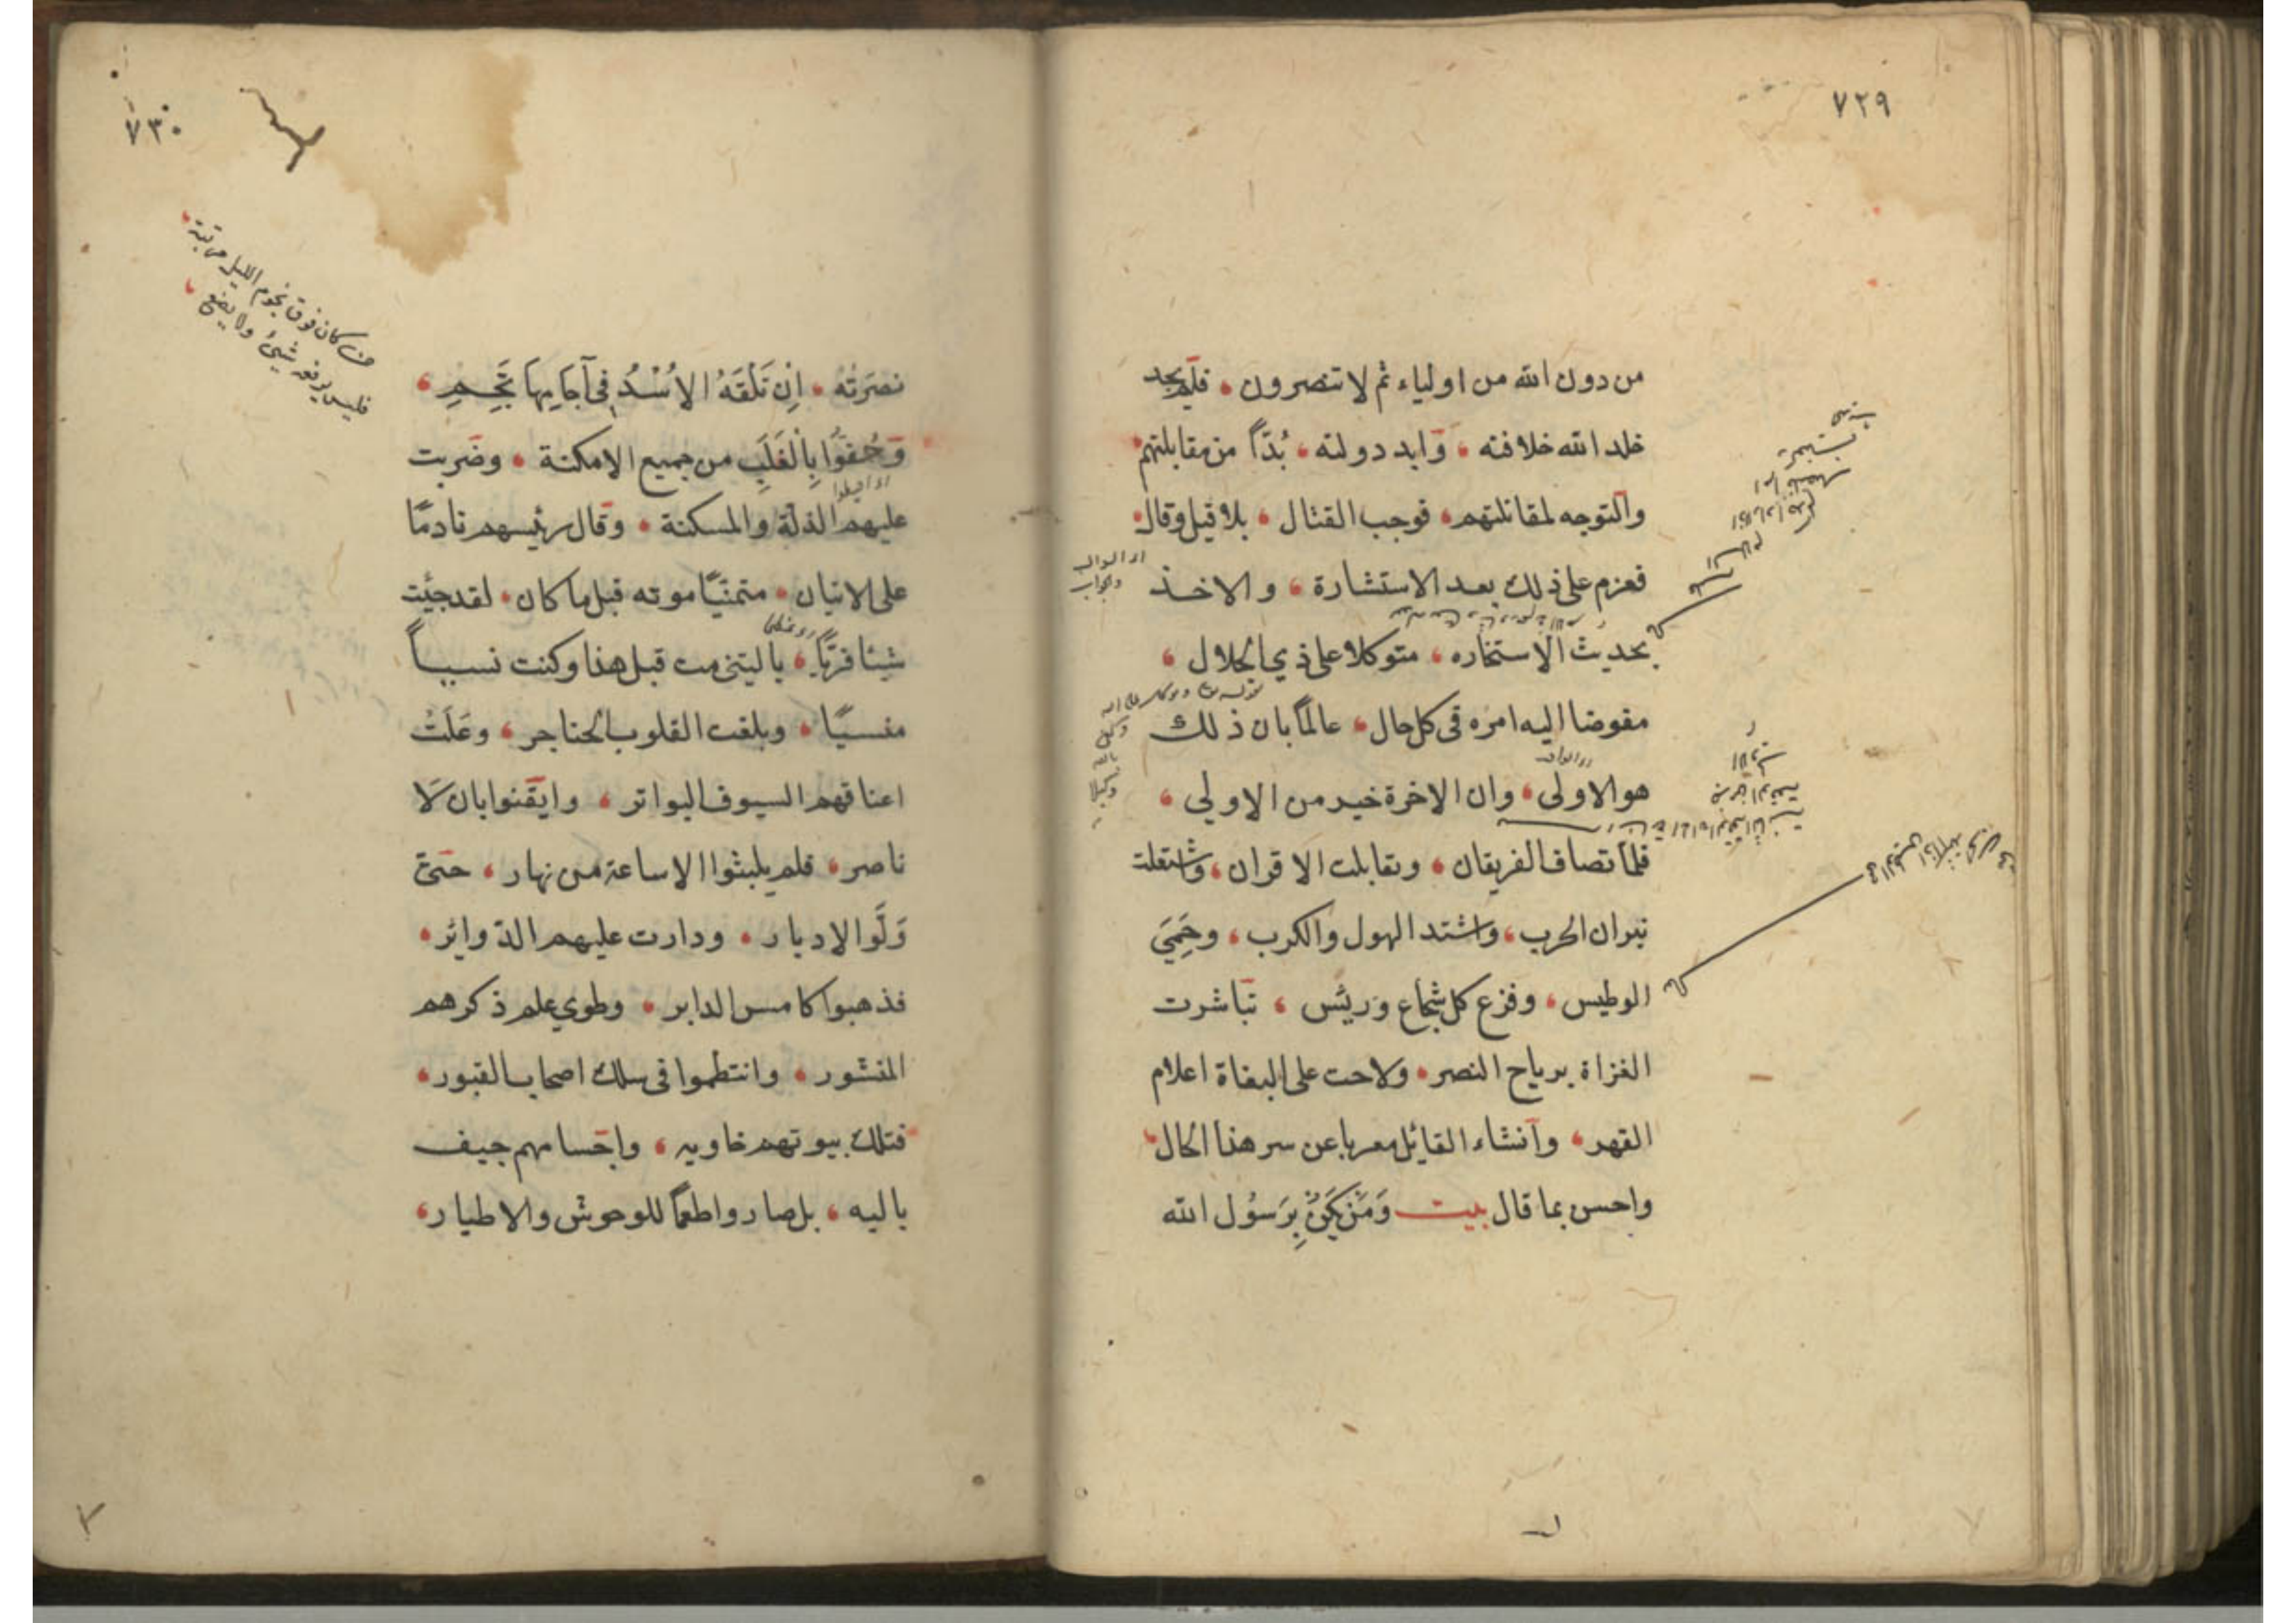 ٧٢٩
من دون الله من اولياء ثم لا تنصرون ، فلم يجد
خلد الله خلافته ، وابد دولته ، بُدّاً من مقابلتهم ،
والتوجه لمقاتلتهم ، فوجب القتال ، بلا قيل وقال ،
فعزم على ذلك بعد الاستشارة ، والاخذ
بحديث الاستخاره ، متوكلا على ذي الجلال ،
مفوضا اليه امره فى كل حال ، عالماً بان ذلك
هو الاولى ، وان الاخرة خير من الاولي ،
فلمّا تصاف الفريقان ، وتقابلت الاقران ، واشتعلت
نيران الحرب ، واشتد الهول والكرب ، وحَمِيَ
الوطيس ، وفزع كل شجاع ورئيس ، تباشرت
الغزاة برياح النصر ، ولاحت على البغاة اعلام
القهر ، وآنشاء القائل معربا عن سر هذا الحال ،
واحسن بما قال بيت وَمَنْ تَكُنْ بِرَسُول الله
٧٣٠
من كان فوق نجوم الليل مرتبة ،
فليس يرفعه شئ ولا يضع ،
نصرَتُه ، اِنْ تَلْقَهُ الاُسْدُ فى آجَامِهَا تَجِمِ ،
وَحُفّوُا بِالْغَلَبِ من جميع الامكنة ، وضربت
عليهم الذلّة والمسكنة ، وقال رئيسهم نادمًا
على الاتيان ، متمنيًّا موته قبل ما كان ، لقد جئت
شيئا فريًّا ، ياليتنى مت قبل هذا وكنت نسياً
منسيًّا ، وبلغت القلوب الحناجر ، وعَلَتْ
اعناقهم السيوف البواتر ، وايقنوا بان لَا
ناصر ، فلم يلبثوا الا ساعة من نهار ، حتىّ
وَلَّوا الادبار ، ودارت عليهم الدّوائر ،
فذهبوا كامس الدابر ، وطوي علم ذكرهم
المنشور ، وانتظموا فى سلك اصحاب القبور ،
فتلك بيوتهم خاويه ، واجسامهم جيف
باليه ، بل صاروا طعمًا للوحوش والاطيار ،